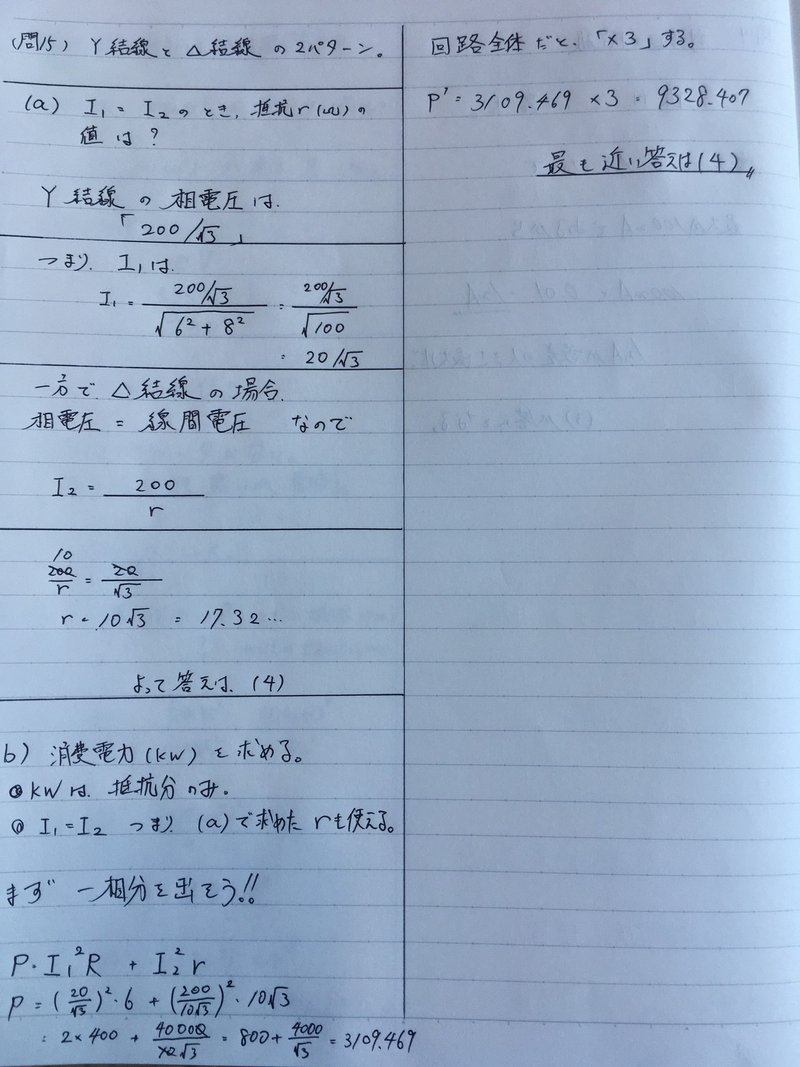 (問15) Y結線と△結線の2パターン。
(a) I₁ = I₂ のとき, 抵抗r(Ω)の
値は?
Y結線の相電圧は
「200/√3」
つまり、I₁は
I₁ = (200/√3)/√(6²+8²) = (200/√3)/√100
= 20/√3
一方で△結線の場合、
相電圧 = 線間電圧 なので
I₂ = 200/r
10
200/r = 20/√3
r = 10√3 = 17.32…
よって答えは、(4)
b) 消費電力(kW)を求める。
①kWは、抵抗分のみ。
② I₁=I₂ つまり (a)で求めたrも使える。
まず一相分を出そう!!
P = I₁²R + I₂²r
P = (20/√3)²・6 + (200/10√3)²・10√3
= 2×400 + 40000/10√3 = 800 + 4000/√3 = 3109.469
回路全体だと、「×3」する。
P' = 3109.469 ×3 = 9328.407
最も近い答えは(4)〃